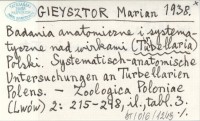 GIEYSZTOR Marian 1938.
Badania anatomiczne i systema-
tyczne nad wirkami (Turbellaria)
Polski. Systematisch-anatomische
Untersuchungen an Turbellarien
Polens. — Zoologica Poloniae
(Lwów) 2: 215-248, il., tabl. 3.